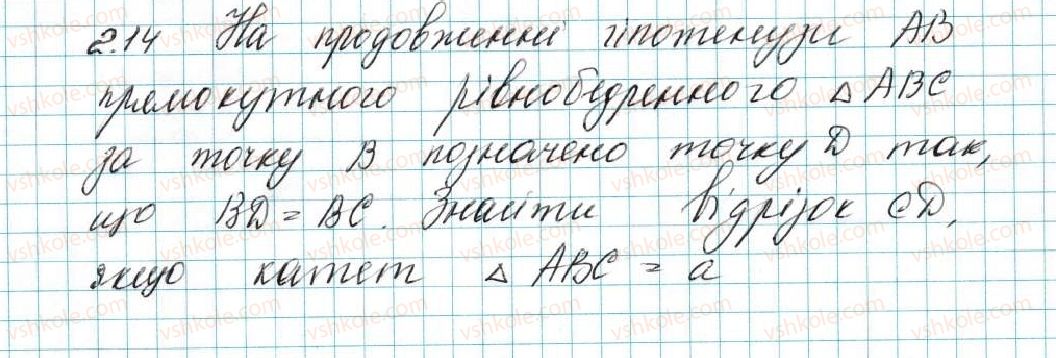 2.14 На продовженні гіпотенузи AB
прямокутного рівнобедренного △ ABC
за точку B позначено точку D так,
що BD = BC. Знайти відрізок CD,
якщо катет △ ABC = a